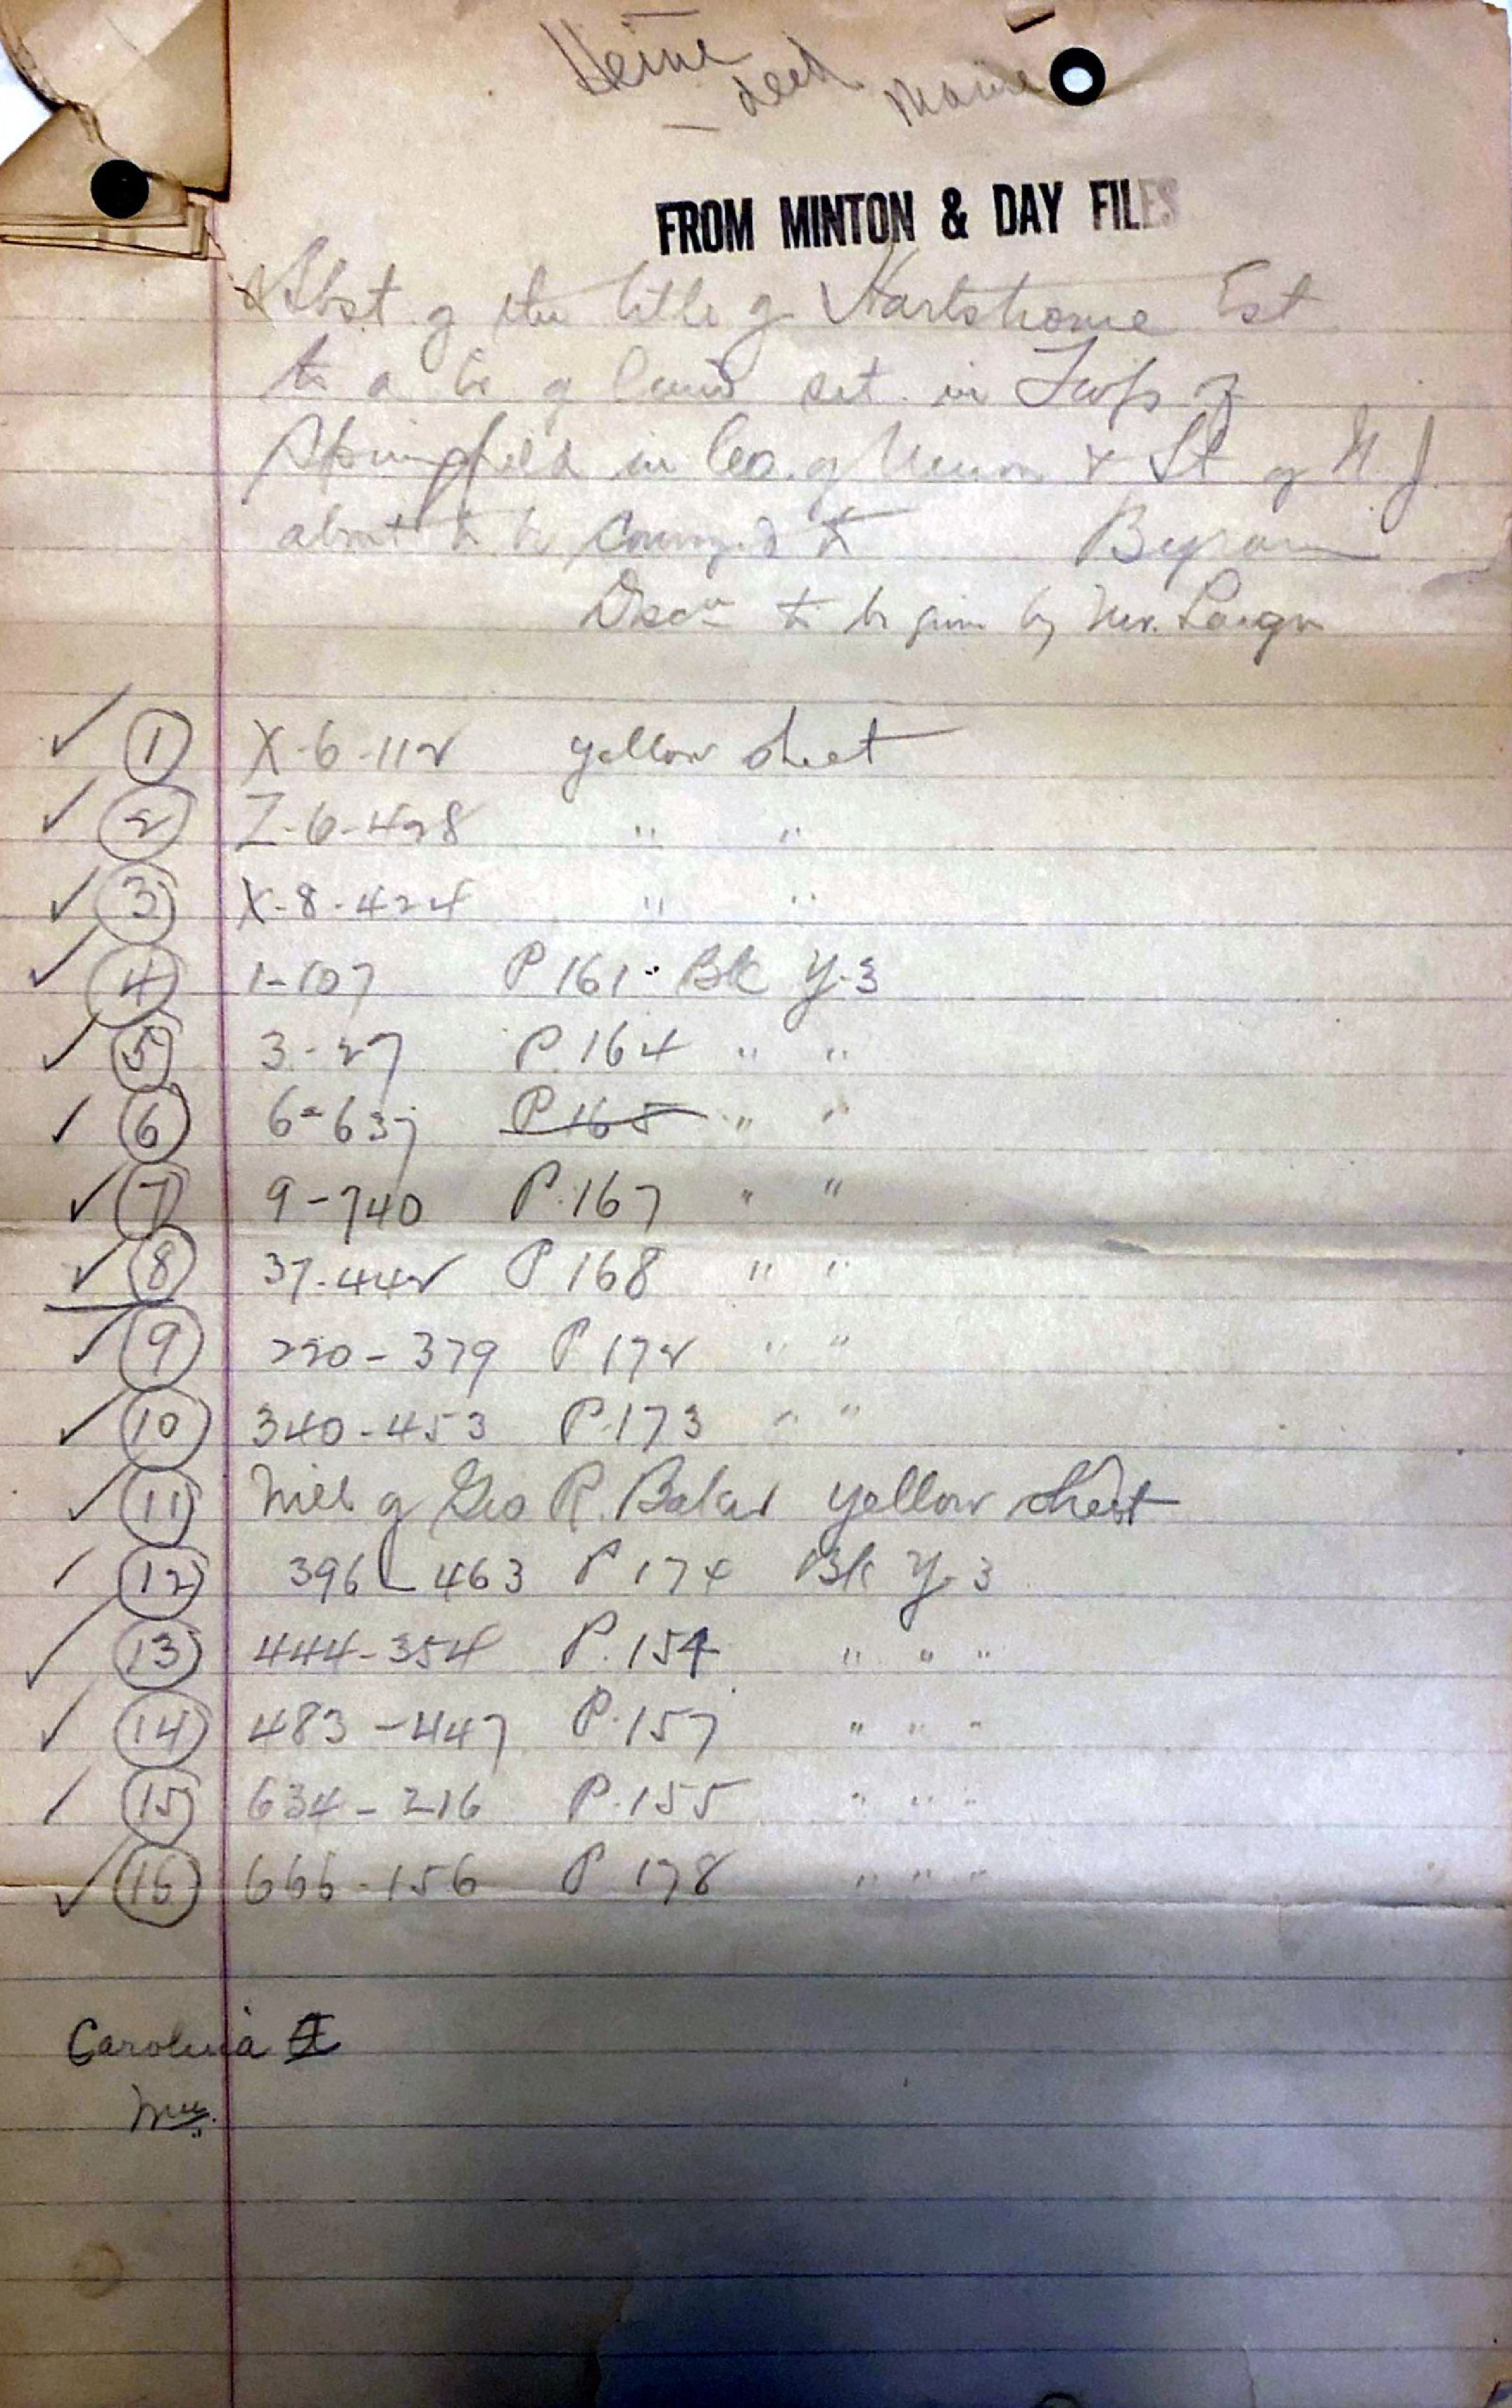 Heine
deed
FROM MINTON & DAY FILES
Abst of the title of Hartshorne Est
to a tr of land sit. in Twp of
Springfield in Co. of Union & St of N.J.
about to be conveyed to Byram
Desc^n to be given by Mr.
✓ 1 X-6-112 yellow sheet
✓ 2 Z-6-428 " "
✓ 3 X-8-424 " "
✓ 4 1-107 P 161 Bk Y-3
✓ 5 3-27 P. 164 " "
✓ 6 6-637 P 165 " "
✓ 7 9-740 P. 167 " "
✓ 8 37-442 P 168 " "
✓ 9 220-379 P 172 " "
✓ 10 340-453 P. 173 " "
✓ 11 Will of Geo R. Baker yellow sheet
✓ 12 396-463 P 174 Bk Y-3
✓ 13 444-354 P. 154 " " "
✓ 14 483-447 P. 157 " " "
✓ 15 634-216 P. 155 " " "
✓ 16 666-156 P 178 " " "
Carolina